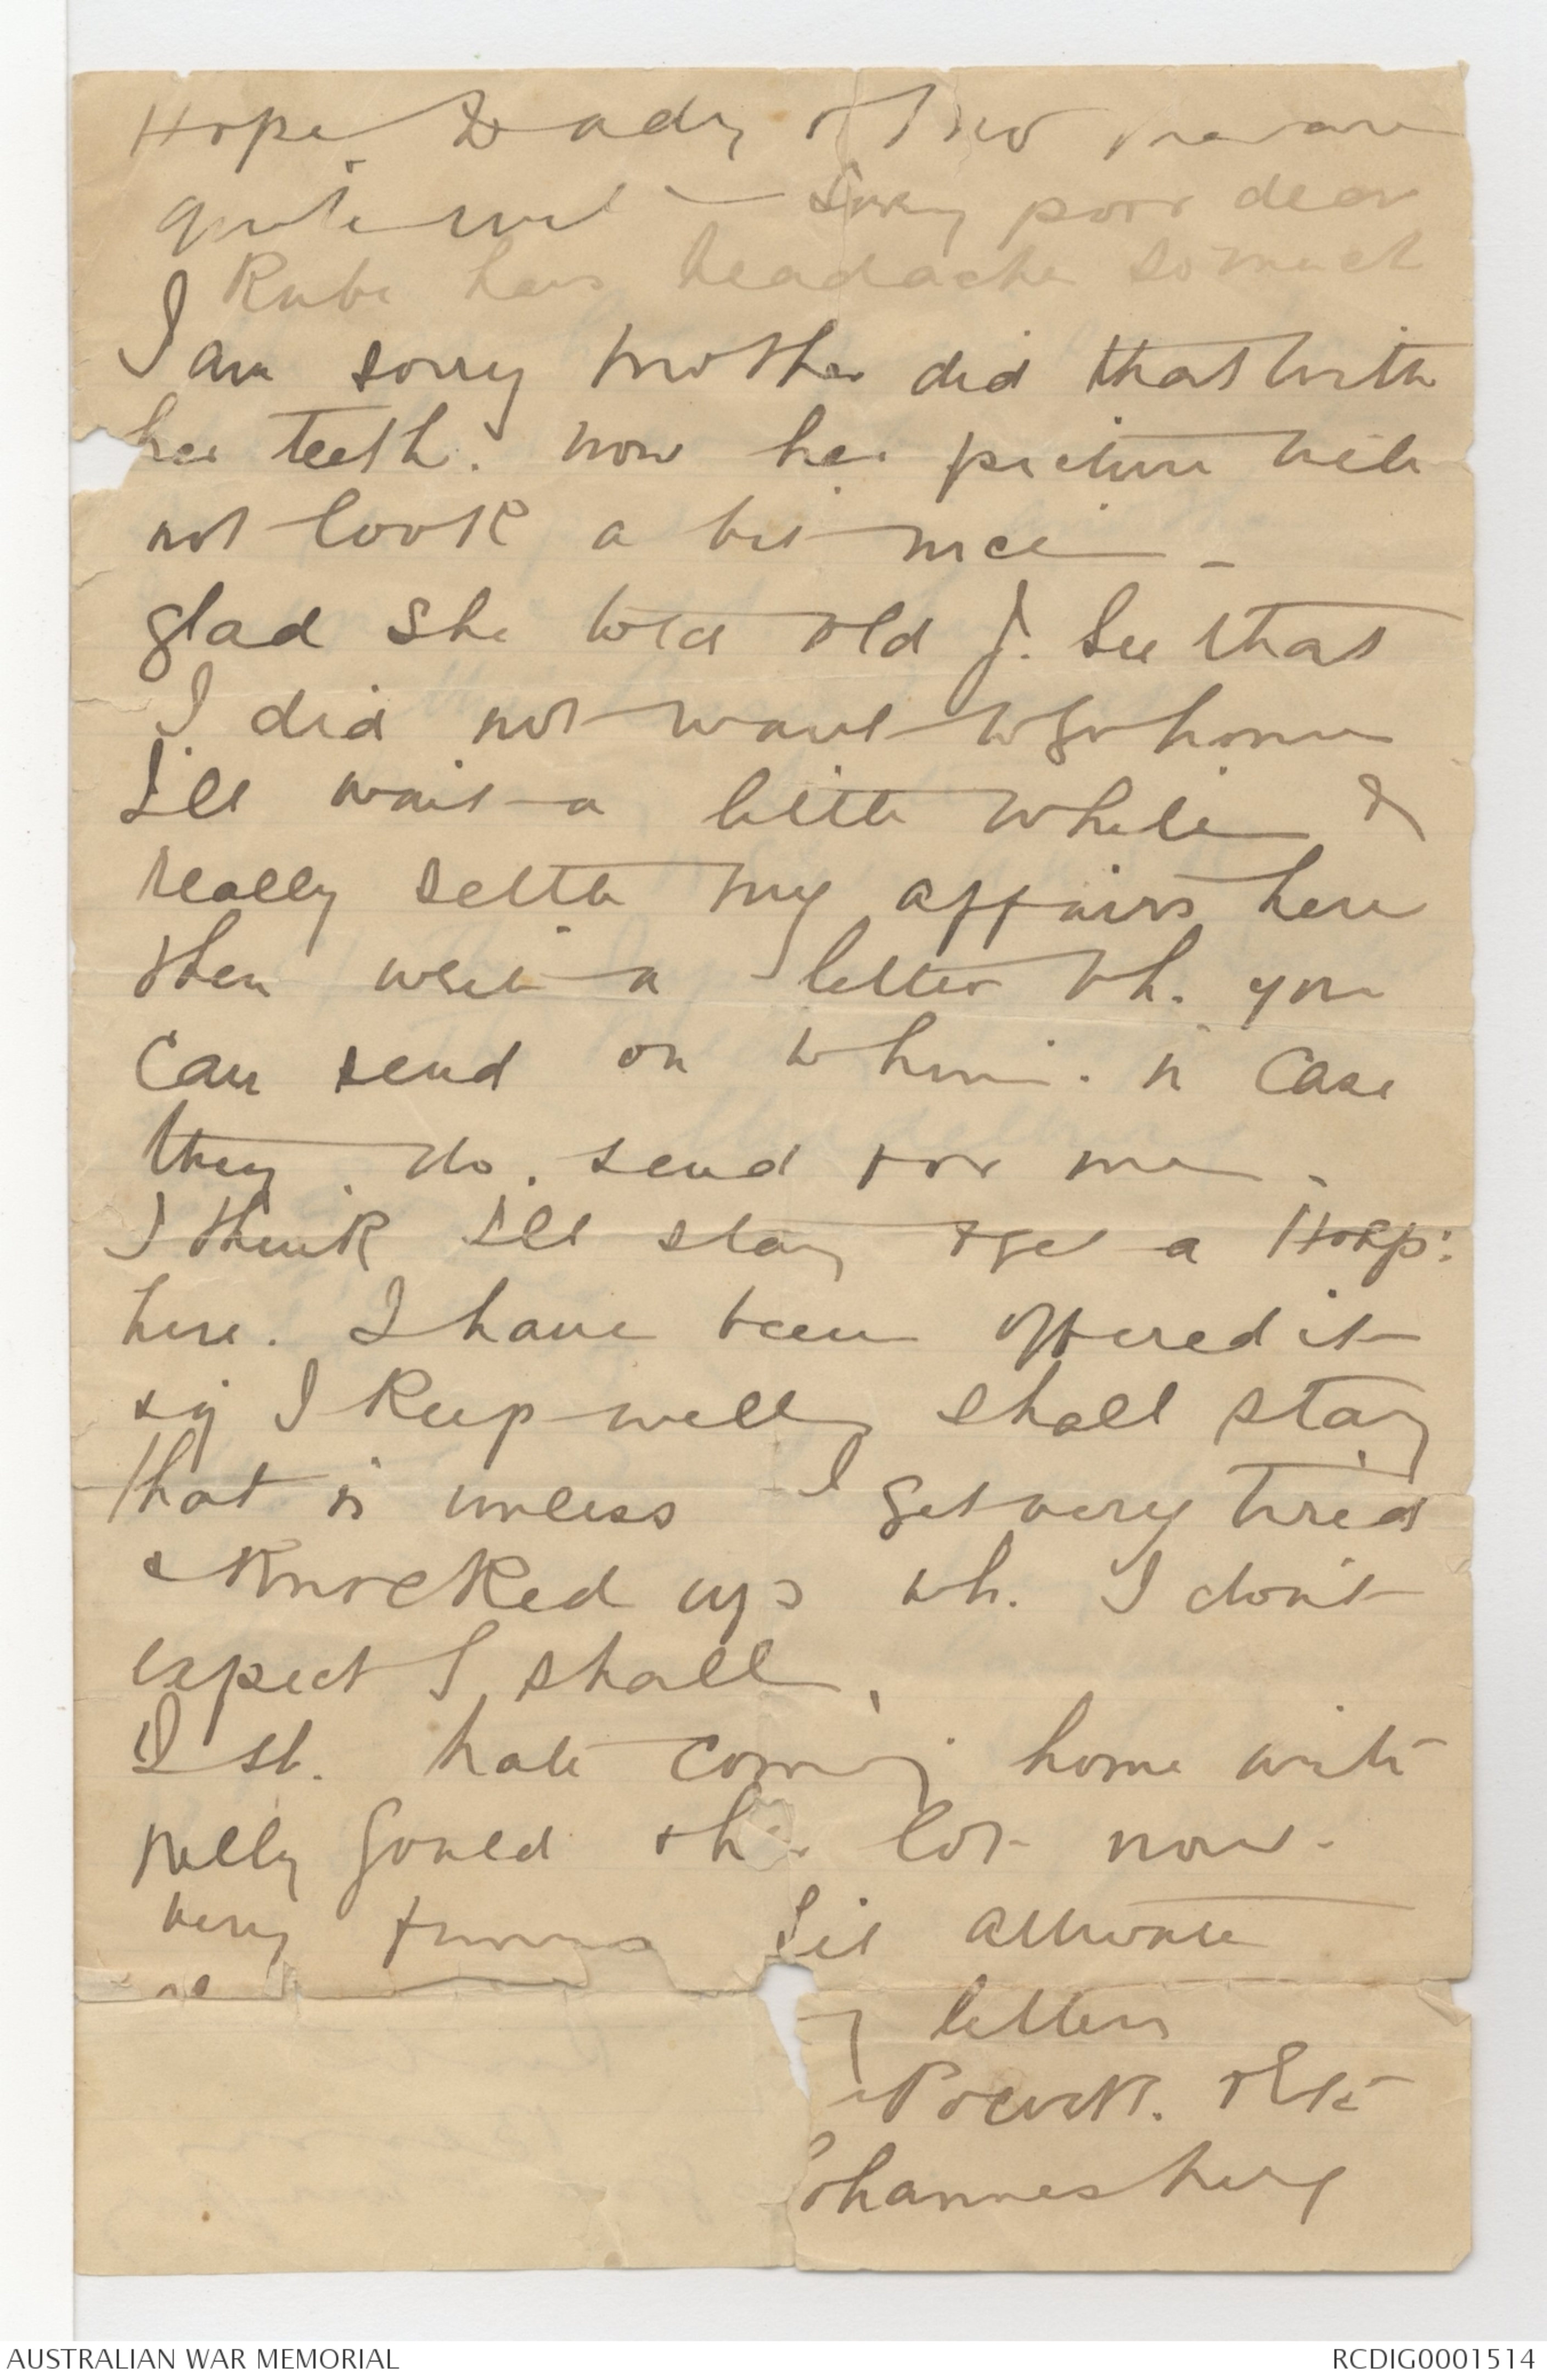 Hope Dady & Mo are
quite well — Sorry poor dear
Rube has headache so much
I am sorry mother did that with
her teeth. now her picture will
not look a bit nice –
glad she told old J. See that
I did not want to go home
I'll wait a little while &
really settle my affairs here
then write a letter wh. you
can send on to him. in case
they do. send for me.
I think I'll stay & get a Hosp:
here. I have been offered it
& if I keep well, shall stay
that is unless I get very tired
& knocked up wh. I don't
expect I shall.
I sh. hate coming home with
Nelly Gould & the lot now.
very funny Sis
letters
Pocock.
ohannesburg
AUSTRALIAN WAR MEMORIAL
RCDIG0001514